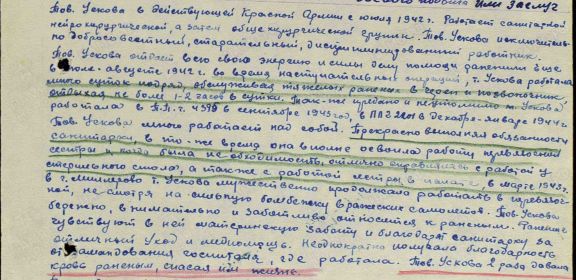 или заслуг
Тов. Ускова в действующей Красной Армии с июля 1942 г. Работает санитаркой
нейрохирургической, а затем общехирургической группы. Тов. Ускова исключитель-
но добросовестный, старательный, дисциплинированный работник.
Тов. Ускова отдает всю свою энергию и силы делу помощи раненым. Еще
в июле-августе 1942 г. во время наступательных операций, т. Ускова работала
много суток подряд, обслуживая тяжелых раненых в череп и позвоночник
отдыхая не более 1-2 часов в сутки. Так-же предано и неутомимо т. Ускова
работала в П.П.Г. 4398 в сентябре 1943 года, в ППГ 2201 в декабре-январе 1944 г.
Тов. Ускова много работает над собой. Прекрасно выполняя обязанности
санитарки, в то-же время она вполне освоила работу
сестры и когда была необходимость, отлично справлялась с работой у
стерильного стола, а также с работой сестры в палате, в марте 1943 г.
в г. Миллерово т. Ускова мужественно продолжала работать в
ной, не смотря на сильную бомбежку вражеских самолетов. Тов. Ускова
бережно, внимательно и заботливо относится к раненым. Раненые
чувствуют в ней материнскую заботу и благодарят санитарку за
отличный уход и медпомощь. Неоднократно получала благодарность
от командования госпиталя, где работала. Тов. Ускова 2 раза давала
кровь раненым, спасая им жизнь.